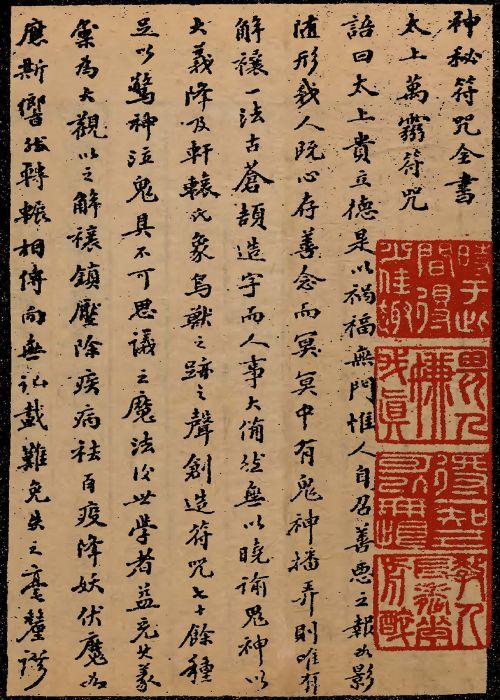 神秘符咒全書
太上萬靈符咒
語曰太上貴立德是以禍福無門惟人自召善惡之報如影
随形我人既心存善念而冥冥中有鬼神播弄則唯有
解禳一法古蒼頡造字而人事大俻然無以曉諭鬼神以
大義降及軒轅氏象鳥獸之跡之聲創造符咒七十餘種
足以驚神泣鬼具不可思議之魔法後世學者益充其義
彙為大觀以之解禳鎮壓除疾病祛百疫降妖伏魔如
應斯響然轉輾相傳而無記載難免失之毫釐謬
時于此間得少佳趣
畏人嫌我真